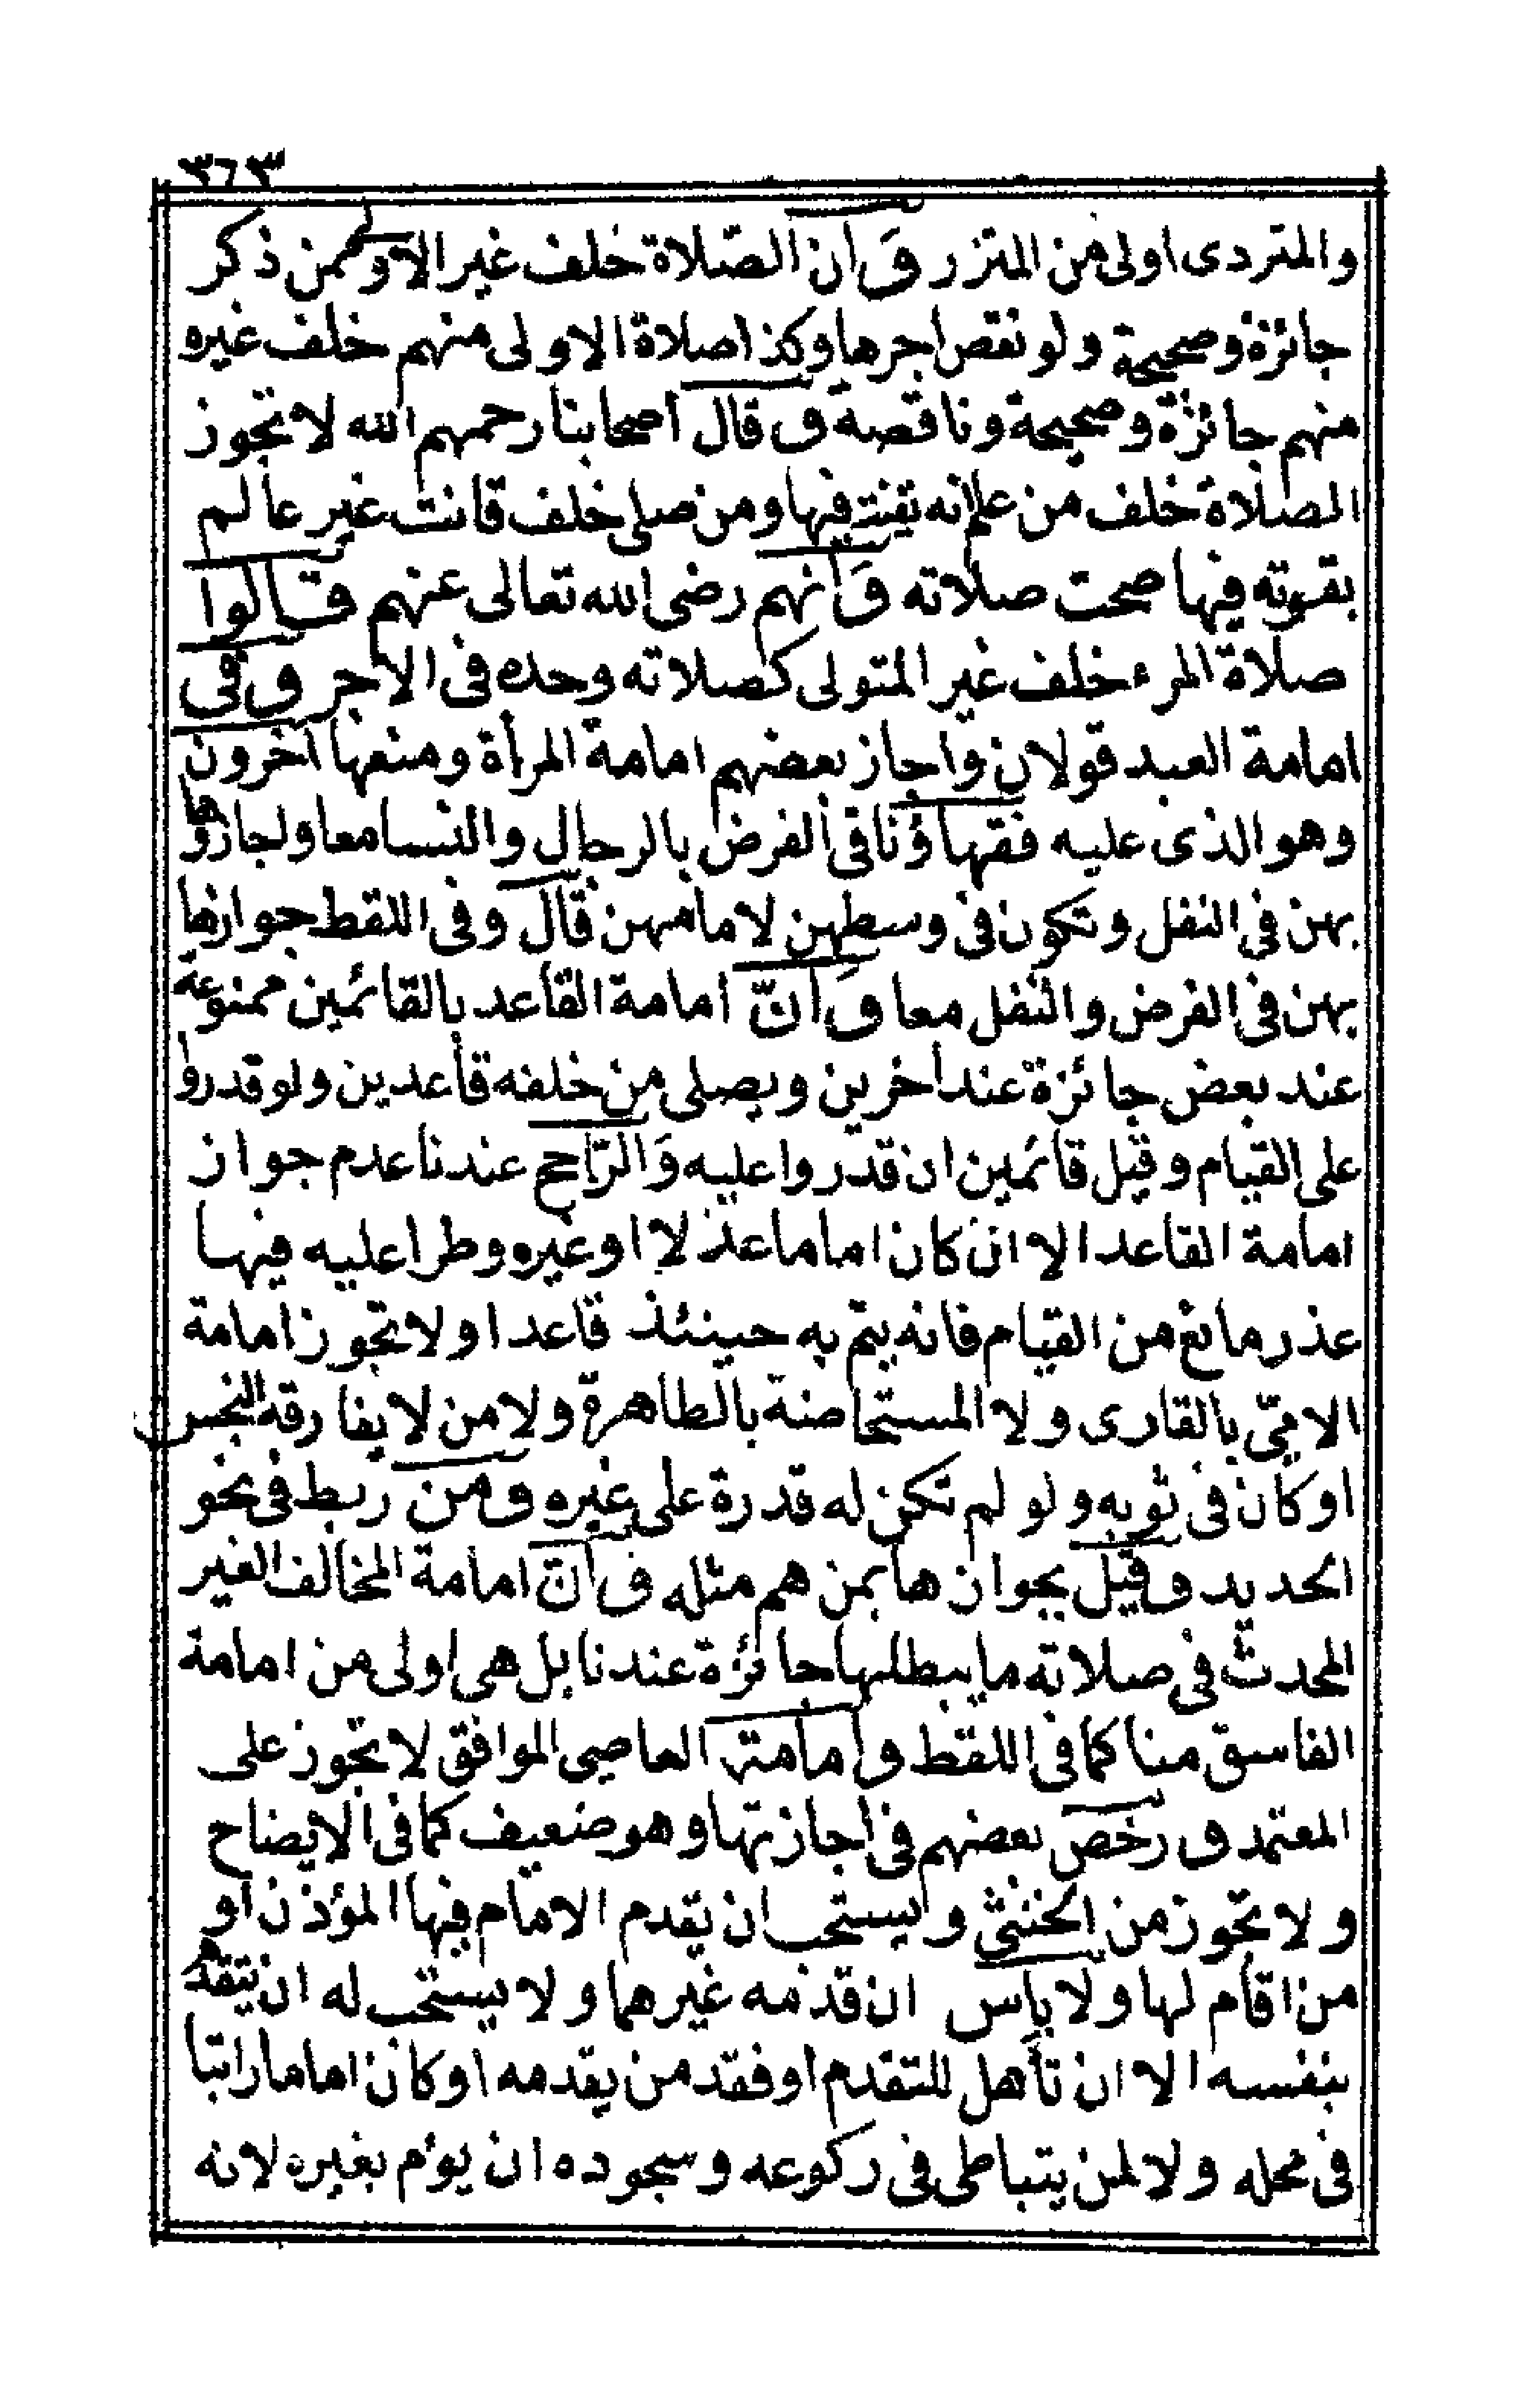 ٣٦٣
والمتردى اولى من المتزر وَان الصّلاة خلف غير الاولى ممن ذكر
جائزة وصحيحة ولو نقص اجرها وكذا صلاة الاولى منهم خلف غيره
منهم جائزة وصحيحة وناقصة وقال اصحابنا رحمهم الله لا تجوز
الصلاة خلف من علم انه يقنت فيها ومن صلى خلف قانت غير عالم
بقنوته فيها صحت صلاته وَانهم رضى الله تعالى عنهم قالوا
صلاة المرء خلف غير المتولى كصلاته وحده فى الاجر وفى
امامة العبد قولان واجاز بعضهم امامة المرأة ومنعها آخرون
وهو الذى عليه فقهاؤنا فى الفرض بالرجال والنسا معا واجازوها
بهن فى النفل وتكون فى وسطهن لا مامهن قال وفى اللقط جوازها
بهن فى الفرض والنفل معا وَانّ امامة القاعد بالقائمين ممنوعة
عند بعض جائزة عند اخرين ويصلى من خلفه قاعدين ولو قدروا
على القيام وقيل قائمين ان قدروا عليه وَالرّاجح عندنا عدم جواز
امامة القاعد الا ان كان اماما عدلا او غيره وطرا عليه فيها
عذر مانع من القيام فانه يتم به حينئذ قاعدا ولا تجوز امامة
الامّى بالقارى ولا المستحاضة بالطاهرة ولا من لا يفارقه النجس
او كان فى ثوبه ولو لم تكن له قدرة على غيره ومن ربط فى نحو
الحديد وقيل بجوازها بمن هم مثله وَانّ امامة المخالف الغير
المحدث فى صلاته ما يبطلها جائزة عندنا بل هى اولى من امامة
الفاسق منا كما فى اللقط وامامة العاصى الموافق لا تجوز على
المعتمد ورخص بعضهم فى اجازتها وهو ضعيف كما فى الايضاح
ولا تجوز من الخنثى ويستحب ان يقدم الامام فيها المؤذن او
من اقام لها ولا باس ان قدمه غيرهما ولا يستحب له ان يتقدم
بنفسه الا ان تأهل للتقدم او فقد من يقدمه او كان اماما راتبا
فى محله ولا لمن يتباطى فى ركوعه وسجوده ان يؤم بغيره لانه